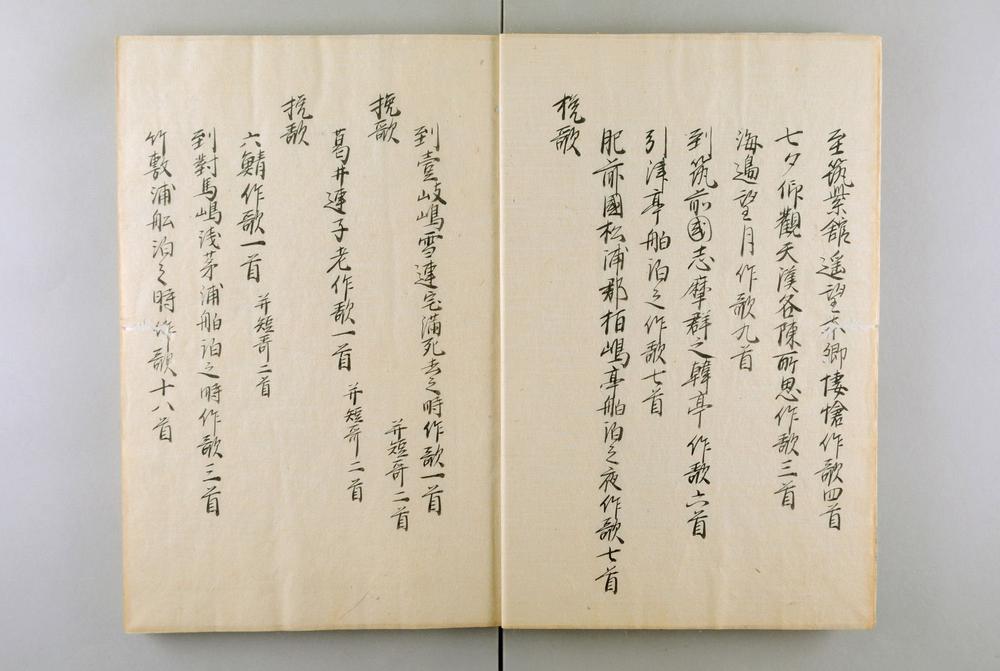 至筑紫舘遥望本郷悽愴作歌四首
七夕仰觀天漢各陳所思作歌三首
海邊望月作歌九首
到筑前國志摩群之韓亭作歌六首
引津亭舶泊之作歌七首
肥前國松浦郡柏嶋亭舶泊之夜作歌七首
挽歌
到壹岐嶋雪連宅満死去之時作歌一首
并短哥二首
挽歌
葛井連子老作歌一首 并短哥二首
挽歌
六鯖作歌一首 并短哥二首
到對馬嶋浅茅浦舶泊之時作歌三首
竹敷浦舩泊之時作歌十八首